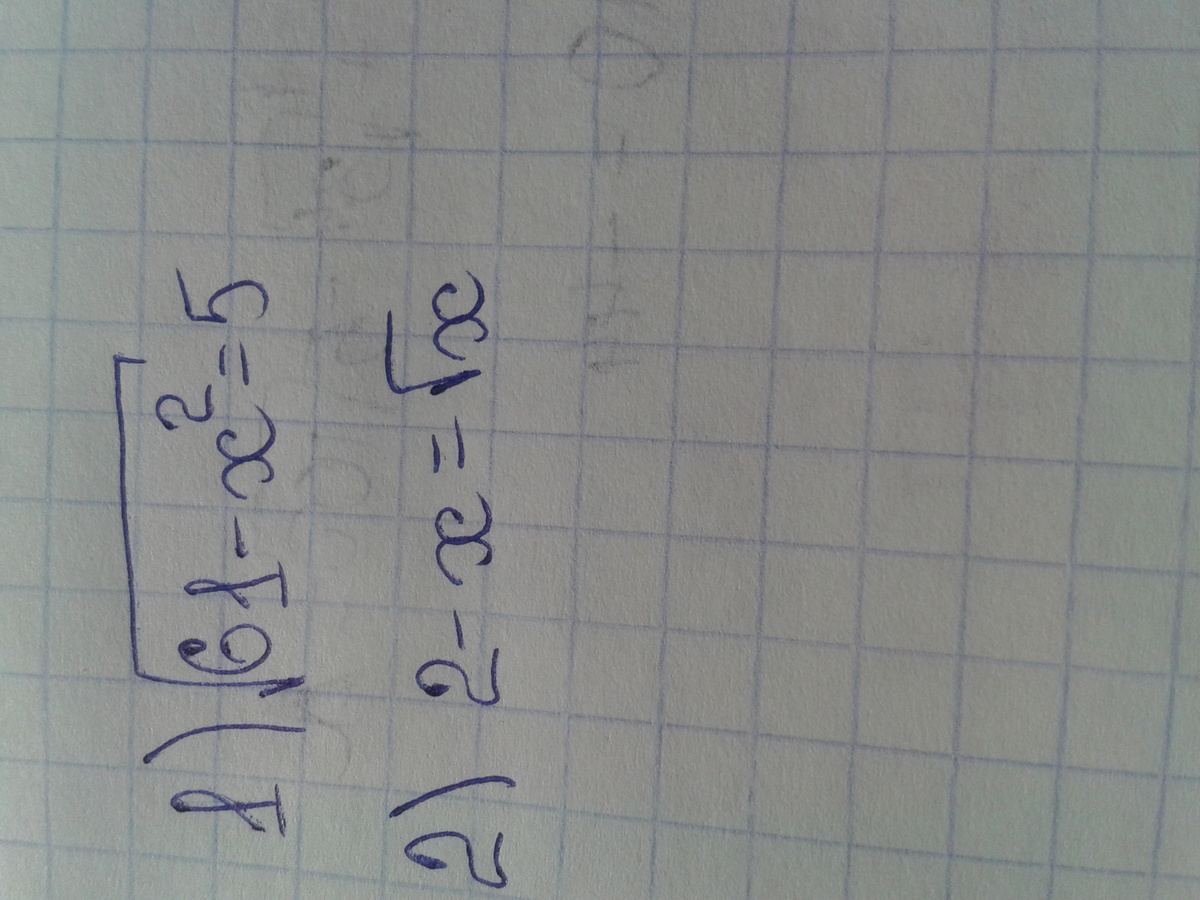 1) √61-x²=5
2) 2-x=√x